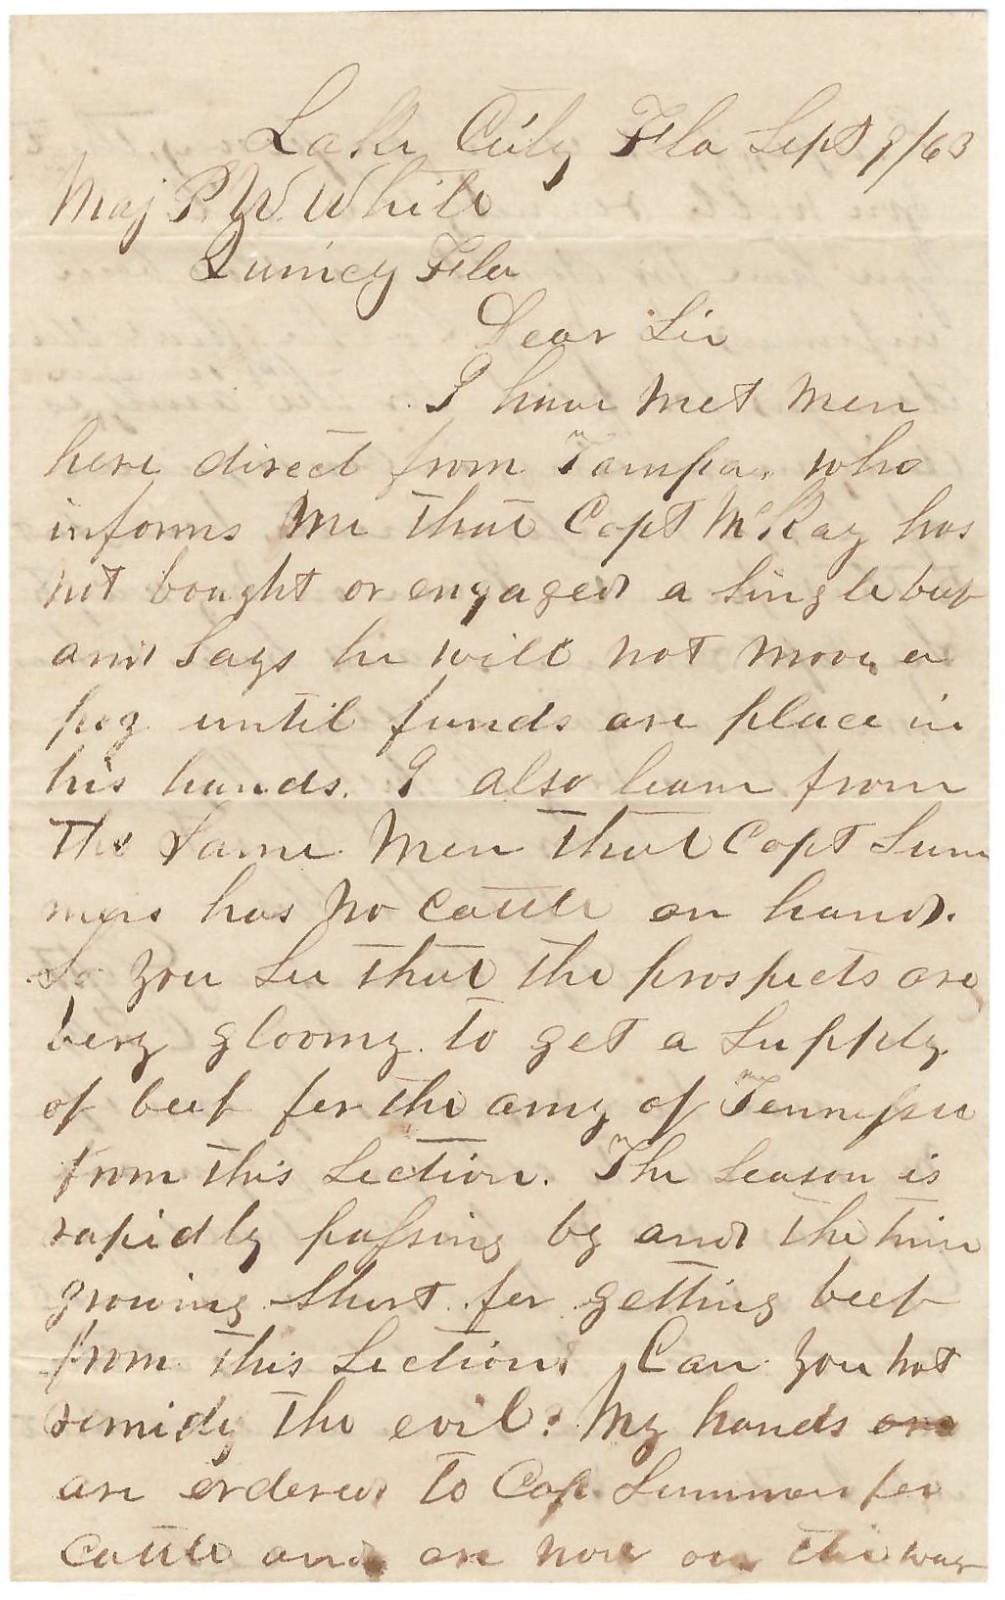 Lake City Fla Sept 9/63
Maj P. W. White
Quincy Fla
Dear Sir
I have met men
here direct from Tampa, who
informs me that Capt McKay has
not bought or engaged a single beef
and says he will not move a
peg until funds are place in
his hands. I also learn from
the same men that Capt Sum
mers has no cattle on hand.
So you see that the prospects are
very gloomy to get a supply
of beef for the army of Tennessee
from this section. The season is
rapidly passing by and the time
growing short for getting beef
from this section. Can you not
remidy the evil? My hands are
are ordered to Cap Summers for
cattle and are now on the way